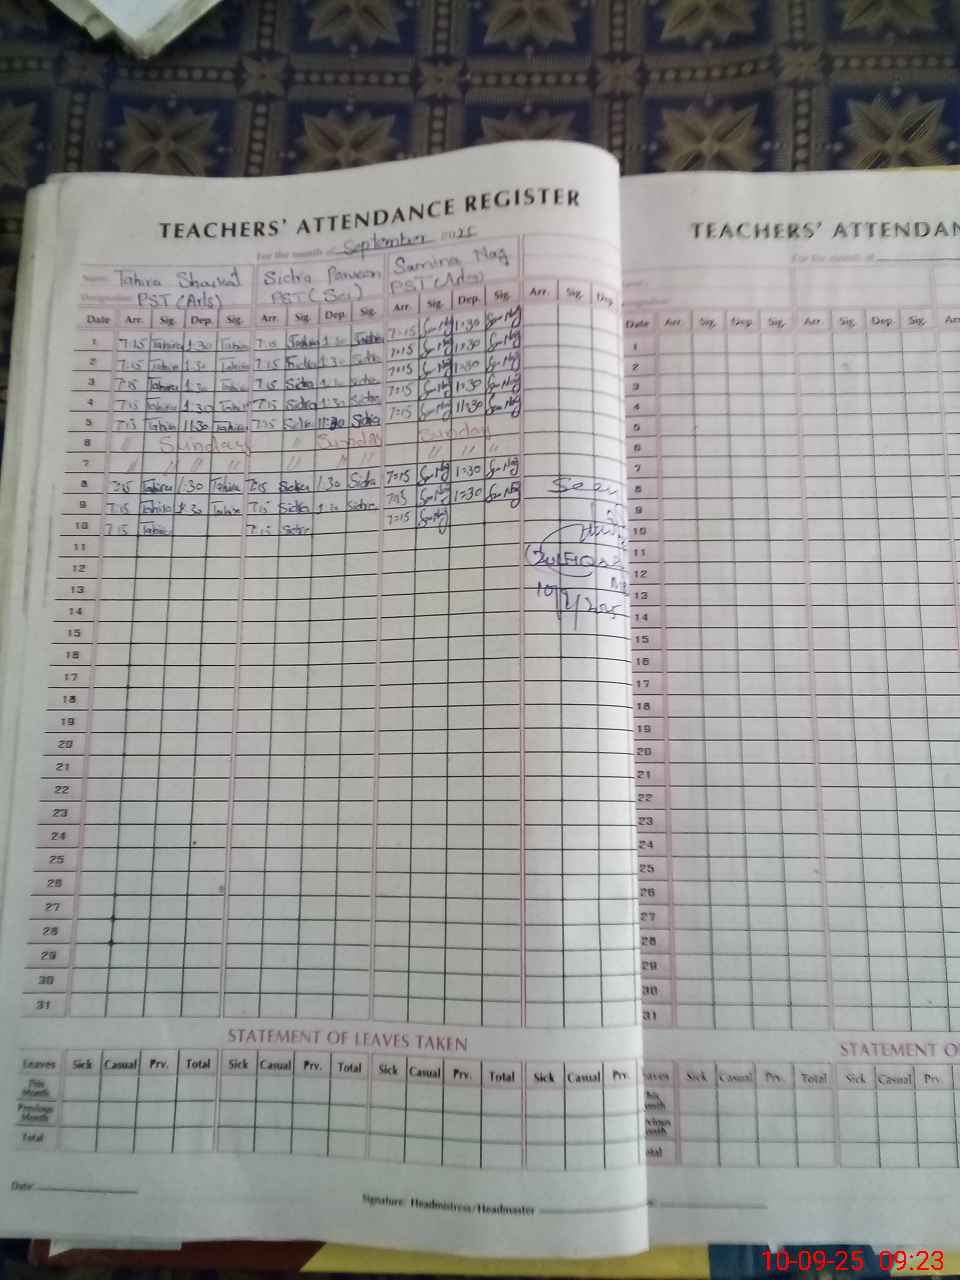 TEACHERS' ATTENDANCE REGISTER
For the month of September 2025
Name Tahira Shaukat Sidra Parveen Samina Naz
Designation PST (Arts) PST (Sci) PST (Arts)
Date Arr. Sig. Dep. Sig. Arr. Sig. Dep. Sig. Arr. Sig. Dep. Sig. Arr. Sig. Dep.
1 7:15 Tahira 1:30 Tahira 7:15 1:30 7:15 1:30
2 7:15 Tahira 1:30 Tahira 7:15 Sidra 1:30 Sidra 7:15 1:30
3 7:15 Tahira 1:30 Tahira 7:15 Sidra 1:30 Sidra 7:15 1:30
4 7:15 Tahira 1:30 Tahira 7:15 Sidra 1:30 Sidra 7:15 1:30
5 7:15 Tahira 11:30 Tahira 7:15 Sidra 11:30 Sidra 7:15 11:30
6 // Sunday // Sunday Sunday
7 // // // // // // // // // //
8 7:15 Tahira 1:30 Tahira 7:15 Sidra 1:30 Sidra 7:15 1:30
9 7:15 Tahira 1:30 Tahira 7:15 Sidra 1:30 Sidra 7:15 1:30
10 7:15 Tahira 7:15 Sidra 7:15
Seen
11
12
13
14
15
16
17
18
19
20
21
22
23
24
25
26
27
28
29
30
31
STATEMENT OF LEAVES TAKEN
Leaves Sick Casual Prv. Total Sick Casual Prv. Total Sick Casual Prv. Total Sick Casual Prv.
This Month
Previous Month
Total
Date
Signature: Headmistress/Headmaster
TEACHERS' ATTENDAN
For the month of
Date Arr. Sig. Dep. Sig. Arr. Sig. Dep. Sig. Arr.
1
2
3
4
5
6
7
8
9
10
11
12
13
14
15
16
17
18
19
20
21
22
23
24
25
26
27
28
29
30
31
STATEMENT O
Sick Casual Prv. Total Sick Casual Prv
10-09-25 09:23